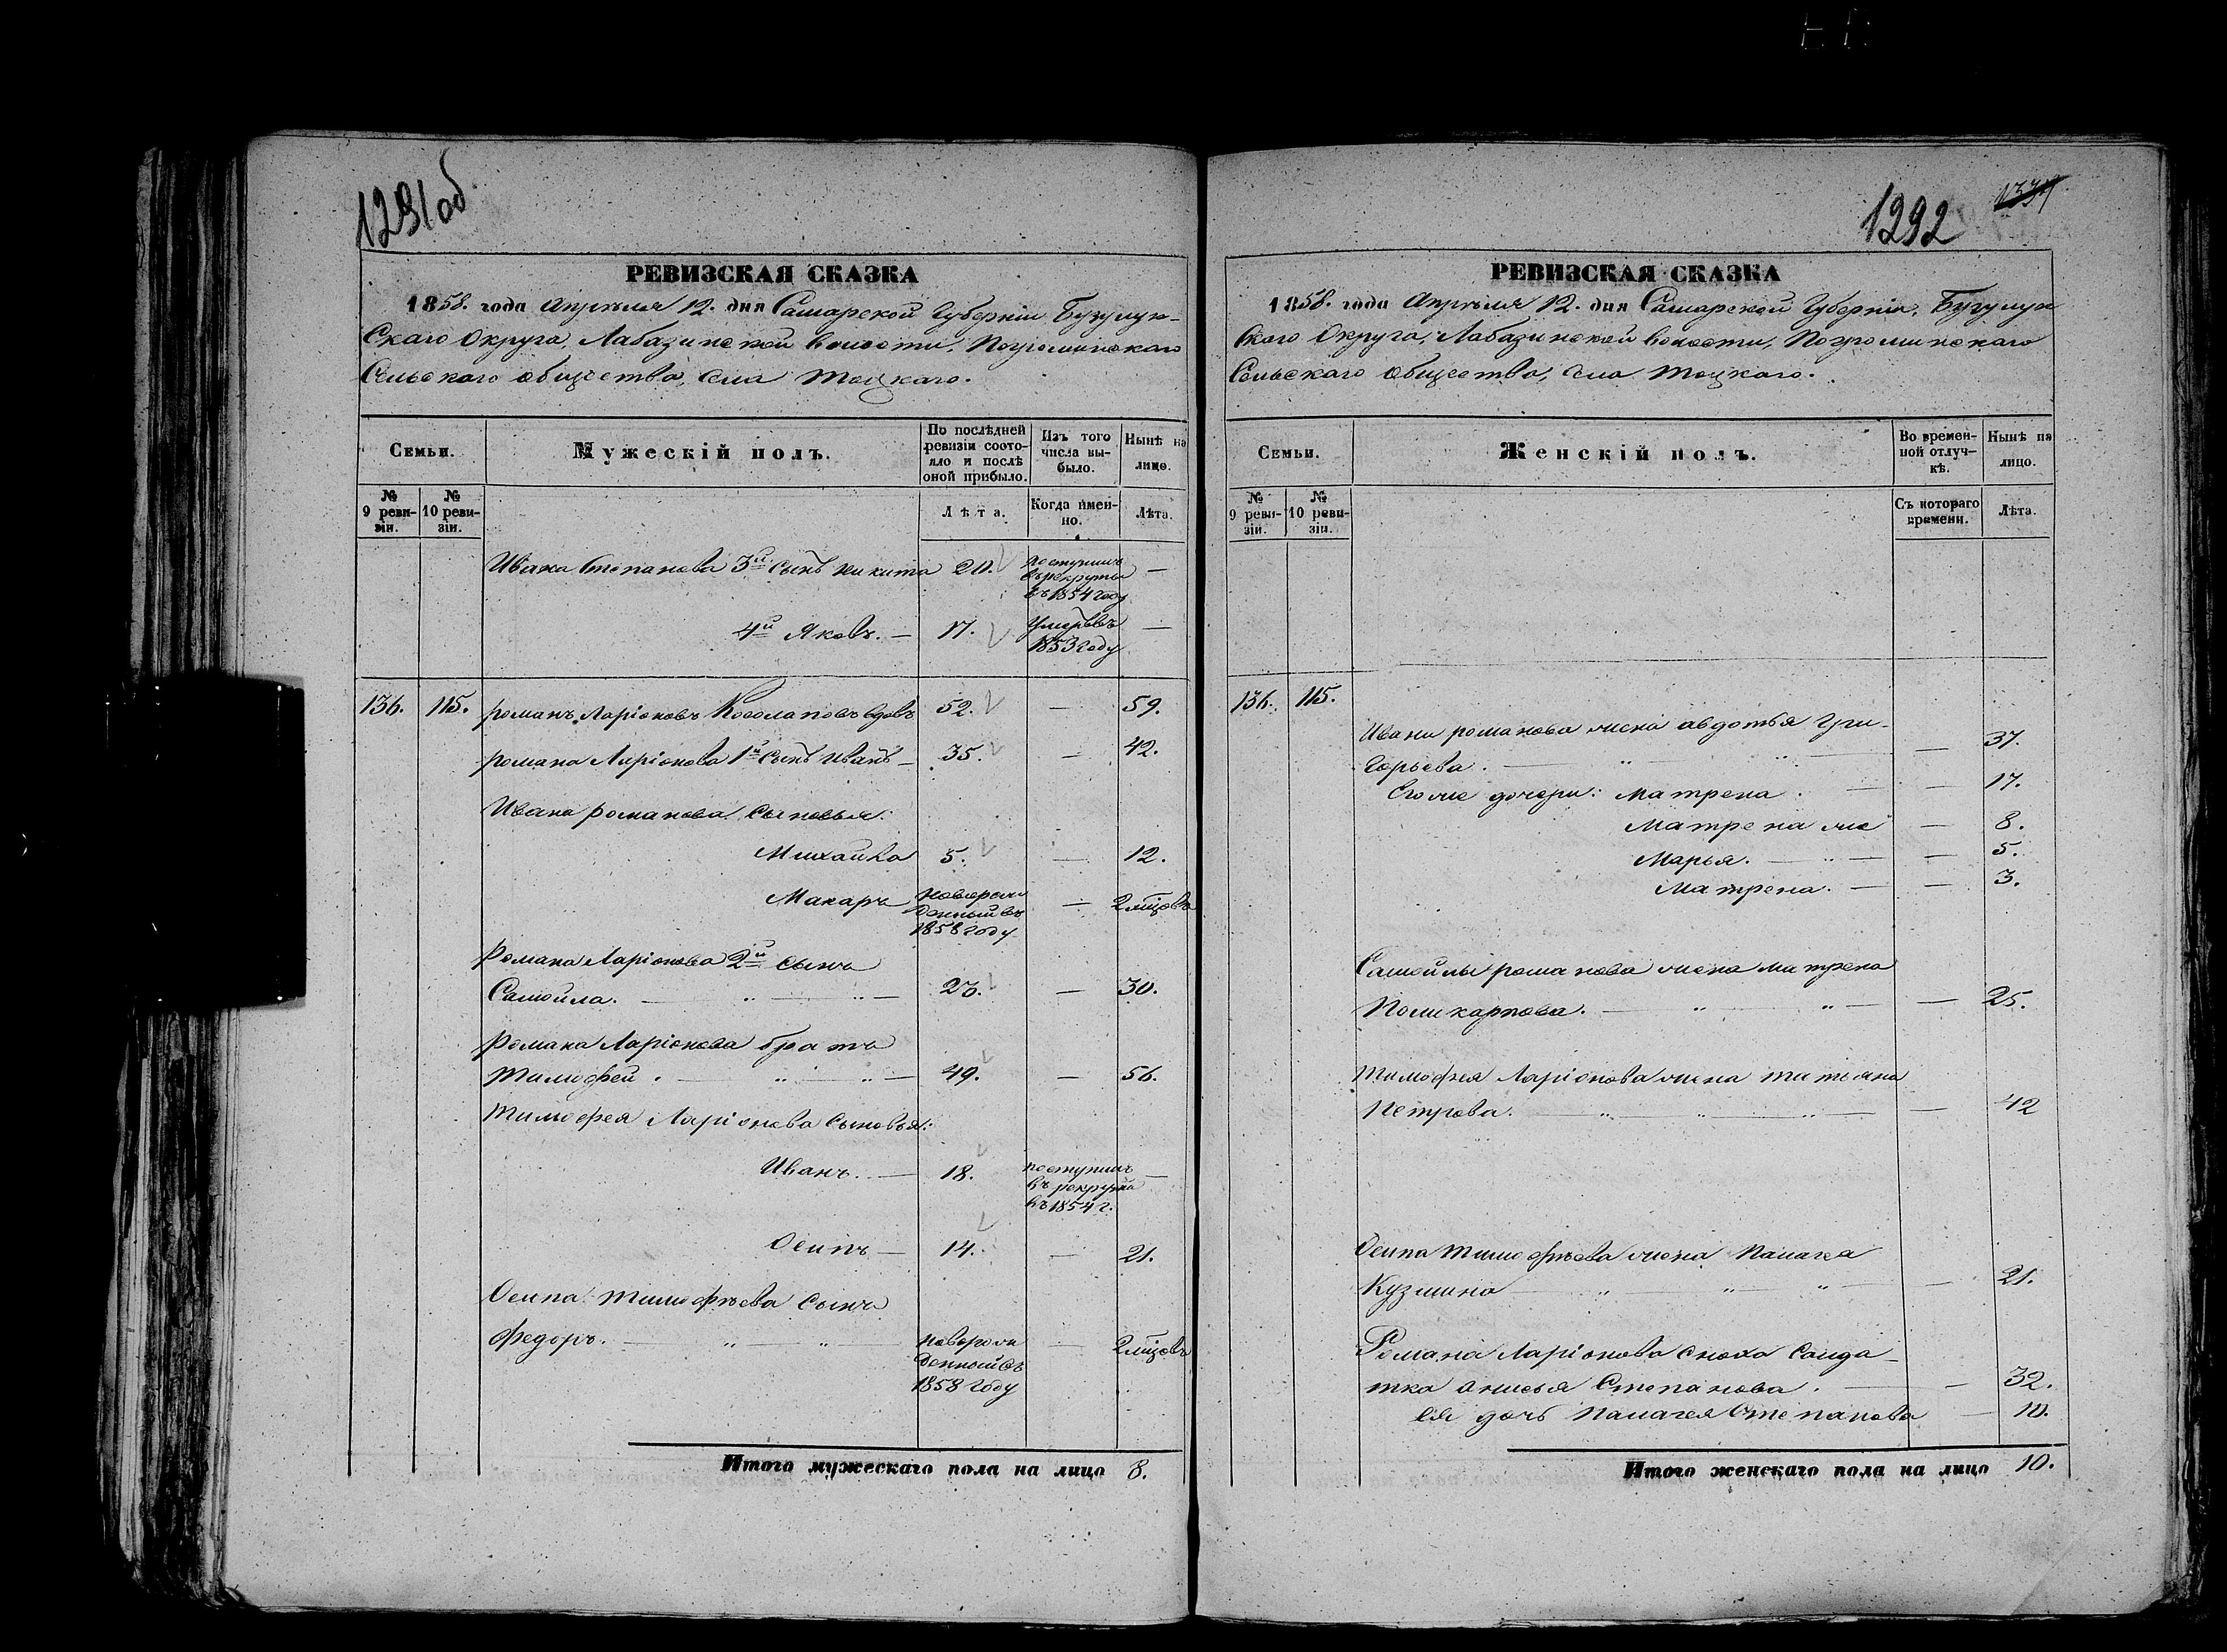 1291об
РЕВИЗСКАЯ СКАЗКА
1858. года Апрѣля 12. дня Самарской Губерніи Бузулук-
Скаго Округа, Лабазинской волости, Погроминскаго
Сельскаго общества, села Тоцкаго.
Семьи.
Мужескій полъ.
По послѣдней ревизіи состояло и послѣ оной прибыло.
Изъ того числа выбыло.
Нынѣ на лицо.
№ 9 ревизіи.
№ 10 ревизіи.
Лѣта.
Когда именно.
Лѣта.
Ивана Степанова 3й сынъ Никита 20. поступилъ въ рекруты въ 1854 году —
4й Яковъ. — 17. Умеръ въ 1853 году —
136. 115. романъ Ларіоновъ Косолаповъ вдовъ 52. — 59.
романа Ларіонова 1й сынъ Иванъ — 35. — 42.
Ивана романова Сыновья:
Михайла 5. — 12.
Макаръ новорожденный въ 1858 году — 2 мѣсцовъ
Романа Ларіонова 2й сынъ
Самойла. — 23. — 30.
Романа Ларіонова братъ
Тимофей. — 49. — 56.
Тимофея Ларіонова Сыновья:
Иванъ. — 18. поступилъ въ рекруты въ 1854 г. —
Осипъ — 14. — 21.
Осипа Тимофѣева Сынъ
Федоръ. — новорожденный въ 1858 году — 2 мѣсцовъ
Итого мужескаго пола на лицо 8.
1292
РЕВИЗСКАЯ СКАЗКА
1858. года Апрѣля 12. дня Самарской Губерніи, Бузулук
Скаго Округа, Лабазинской волости, Погроминскаго
Сельскаго общества, села Тоцкаго.
Семьи.
Женскій полъ.
Во временной отлучкѣ.
Нынѣ на лицо.
№ 9 ревизіи.
№ 10 ревизіи.
Съ котораго времени.
Лѣта.
136. 115.
Ивана романова жена авдотья Гри-
горьева. — — 37.
Его же дочери: Матрена. — — 17.
Матрена же — 8.
Марья. — — 5.
Матрена. — — 3.
Самойлы романова жена Матрена
Поликарпова. — — 25.
Тимофея Ларіонова жена татьяна
Петрова. — — 42
Осипа Тимофѣева жена Палагея
Кузмина — — 21.
Романа Ларіонова сноха Солда-
тка анисья Степанова. — — 32.
ея дочь Палагея Степанова — 10.
Итого женскаго пола на лицо 10.